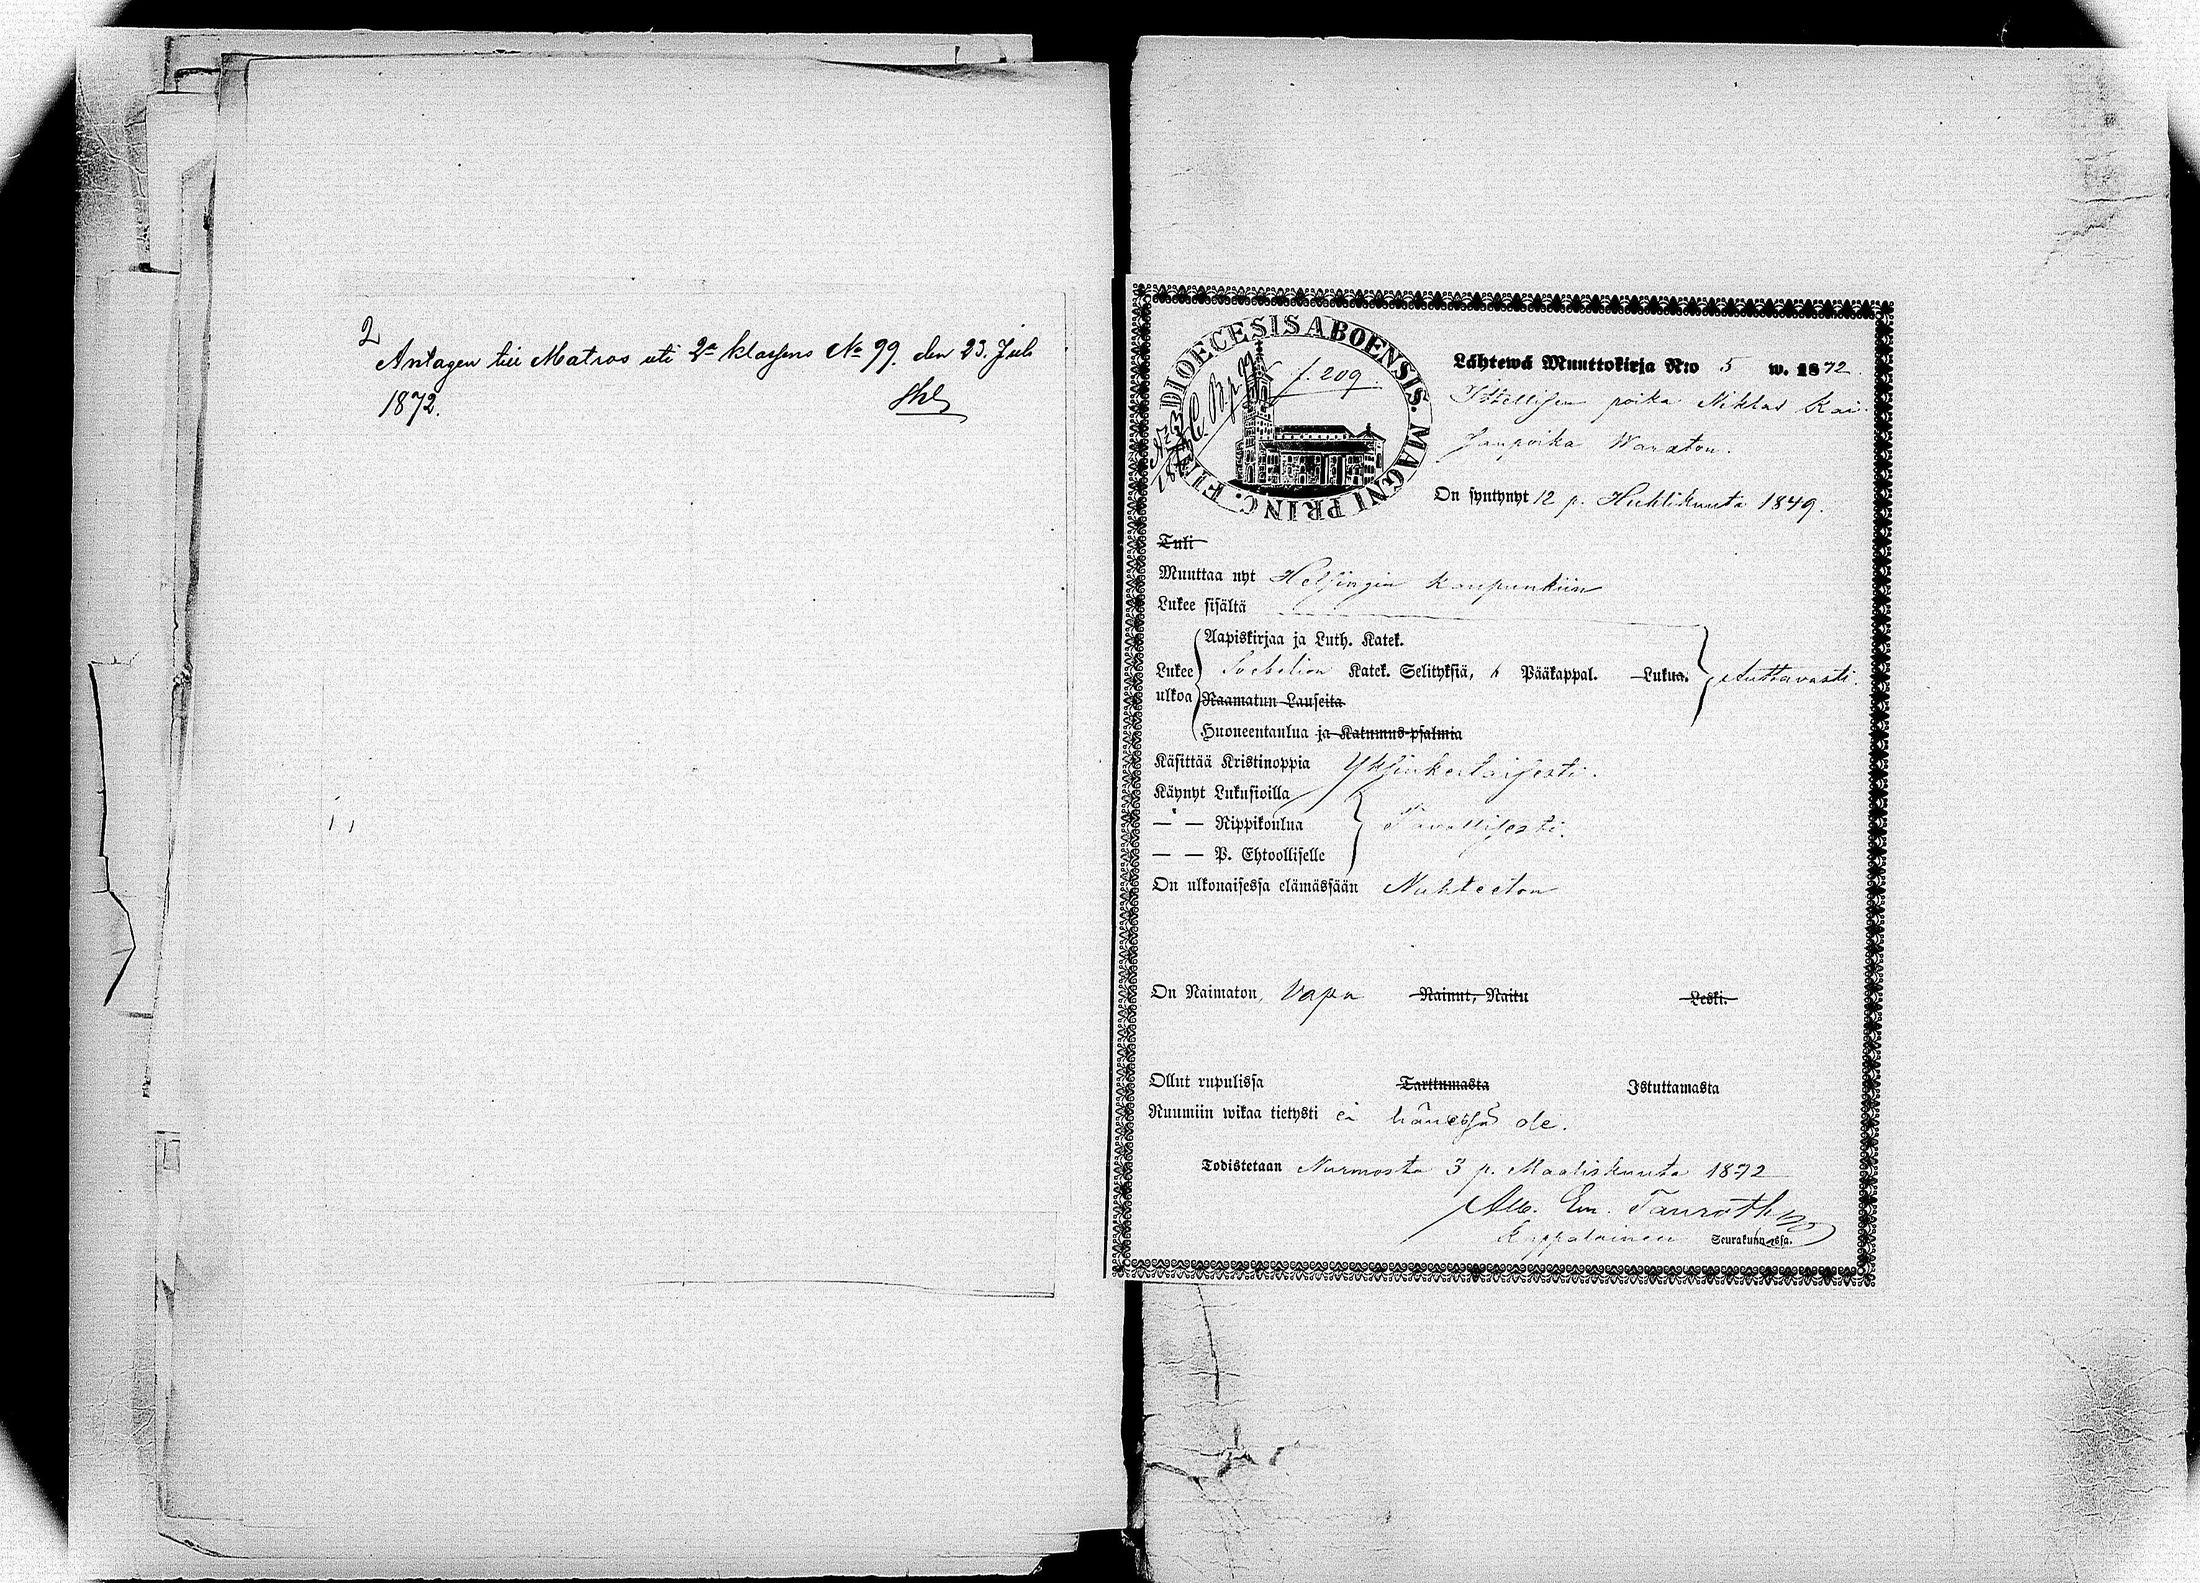 2
Antagen till Matros uti 2a klassens No 99. den 23. Juli
1872.
DIOECESIS ABOENSIS. MAGNI PRINC. FI
f. 209.
Lähtewä Muuttokirja N:o 5 w. 1872.
Itsellisen poika Niklas Kai-
Janpoika Waraton.
On syntynyt 12 p. Huhtikuuta 1849.
Tuli
Muuttaa nyt Helsingin kaupunkiin
Lukee sisältä
Aapiskirjaa ja Luth. Katek.
Lukee ulkoa Svebelion Katek. Selityksiä, 6 Pääkappal. Lukua. Auttavasti.
Raamatun Lauseita
Huoneentaulua ja Katumus-psalmia
Käsittää Kristinoppia Yksinkertaisesti.
Käynyt Lukusioilla
— " — Rippikoulua Tavallisesti.
— — P. Ehtoolliselle
On ulkonaisessa elämässään Nuhteeton
On Naimaton, Vapa Nainut, Naitu Leski.
Ollut rupulissa Tarttumasta Istuttamasta
Ruumiin wikaa tietysti ei hänessä ole.
Todistetaan Nurmosta 3 p. Maaliskuuta 1872
Alb. Em. Tauroth
Kappalainen Seurakunnassa.